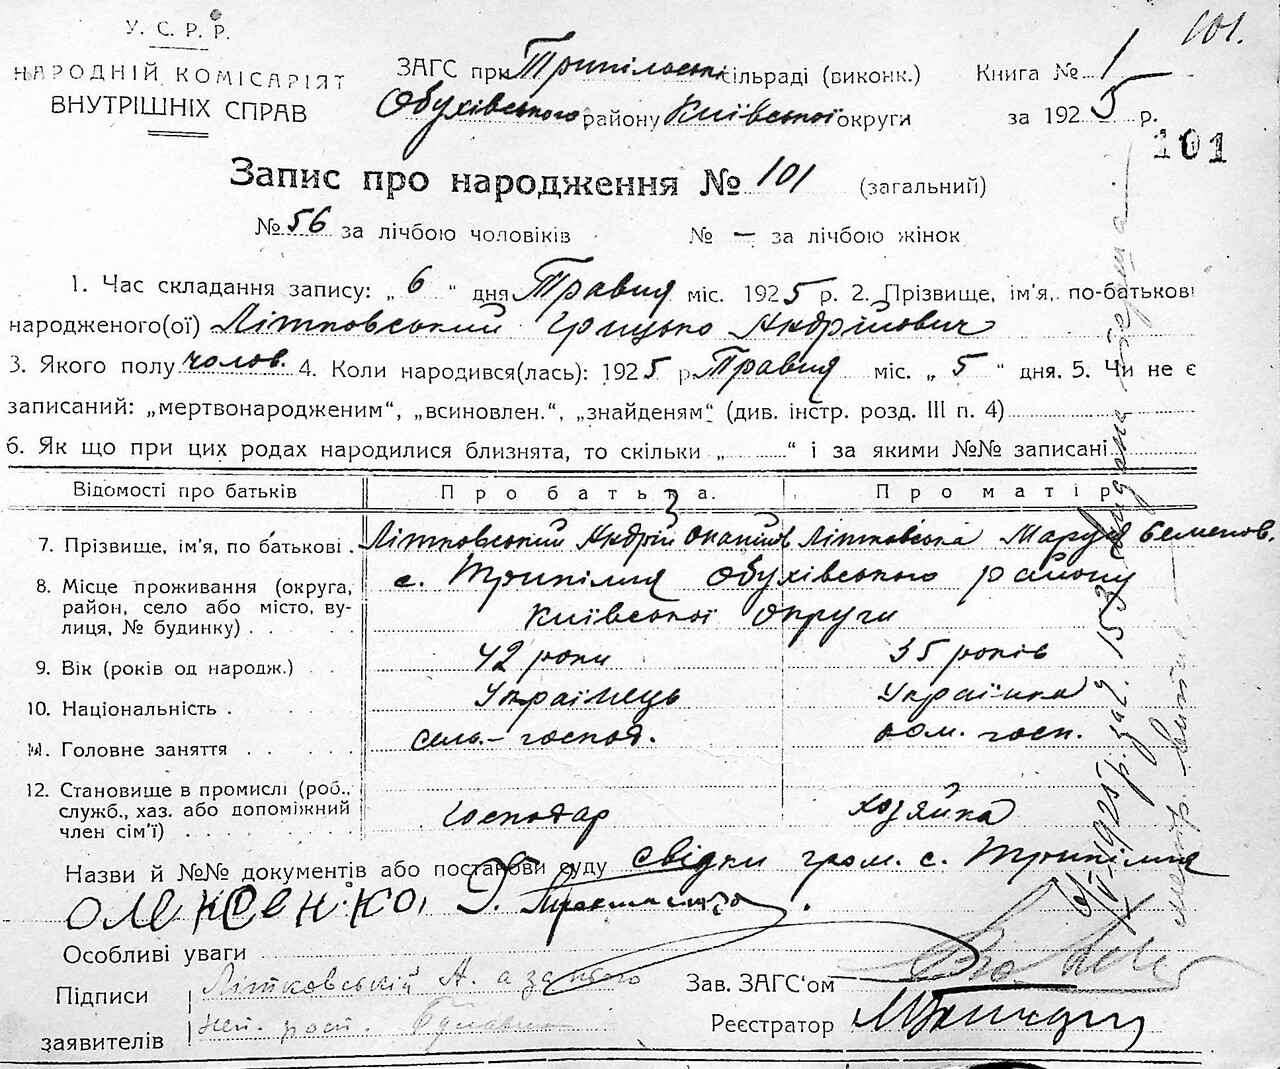 У. С. Р. Р.
НАРОДНІЙ КОМІСАРІЯТ
ВНУТРІШНІХ СПРАВ
101.
ЗАГС при Трипільскі сільраді (виконк.) Книга № 1
Обухівського району Київської округи за 1925 р.
101
Запис про народження № 101 (загальний)
№ 56 за лічбою чоловіків № — за лічбою жінок
1. Час складання запису: „ 6 “ дня Травня міс. 1925 р. 2. Прізвище, ім'я, по-батькові
народженого(ої) Літковський Грицько Андрійович
3. Якого полу чолов. 4. Коли народився(лась): 1925 р. Травня міс. „ 5 “ дня. 5. Чи не є
записаний: „мертвонародженим“, „всиновлен.“, „знайденям“ (див. інстр. розд. III п. 4)
6. Як що при цих родах народилися близнята, то скільки „ “ і за якими №№ записані
Відомості про батьків Про батька. Про матір
7. Прізвище, ім'я, по батькові . Літковський Андрій Літковська Маруся Семенов.
8. Місце проживання (округа, район, село або місто, вулиця, № будинку) . с. Трипілля Обухівського району
Київської округи
9. Вік (років од народж.) 42 роки 35 років
10. Національність . Українець Українка
11. Головне заняття сель.-господ. дом. госп.
12. Становище в промислі (роб.,
служб., хаз. або допоміжний
член сім'ї) Господар хозяйка
Назви й №№ документів або постанови суду свідки гром. с. Трипілля
Олексенко,
Особливі уваги
Підписи Літковській А. а за нього
заявителів неп. рост.
Зав. ЗАГС'ом
Реєстратор
1925 р. за № 153 видана